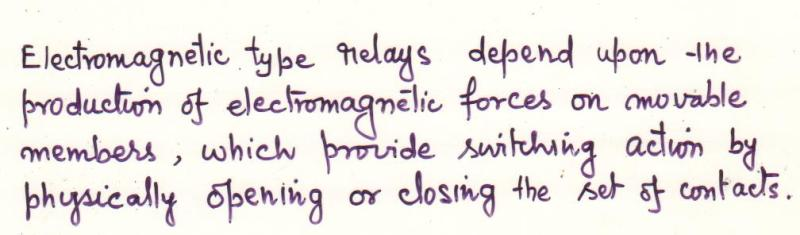 Electromagnetic type relays depend upon the
production of electromagnetic forces on movable
members, which provide switching action by
physically opening or closing the set of contacts.